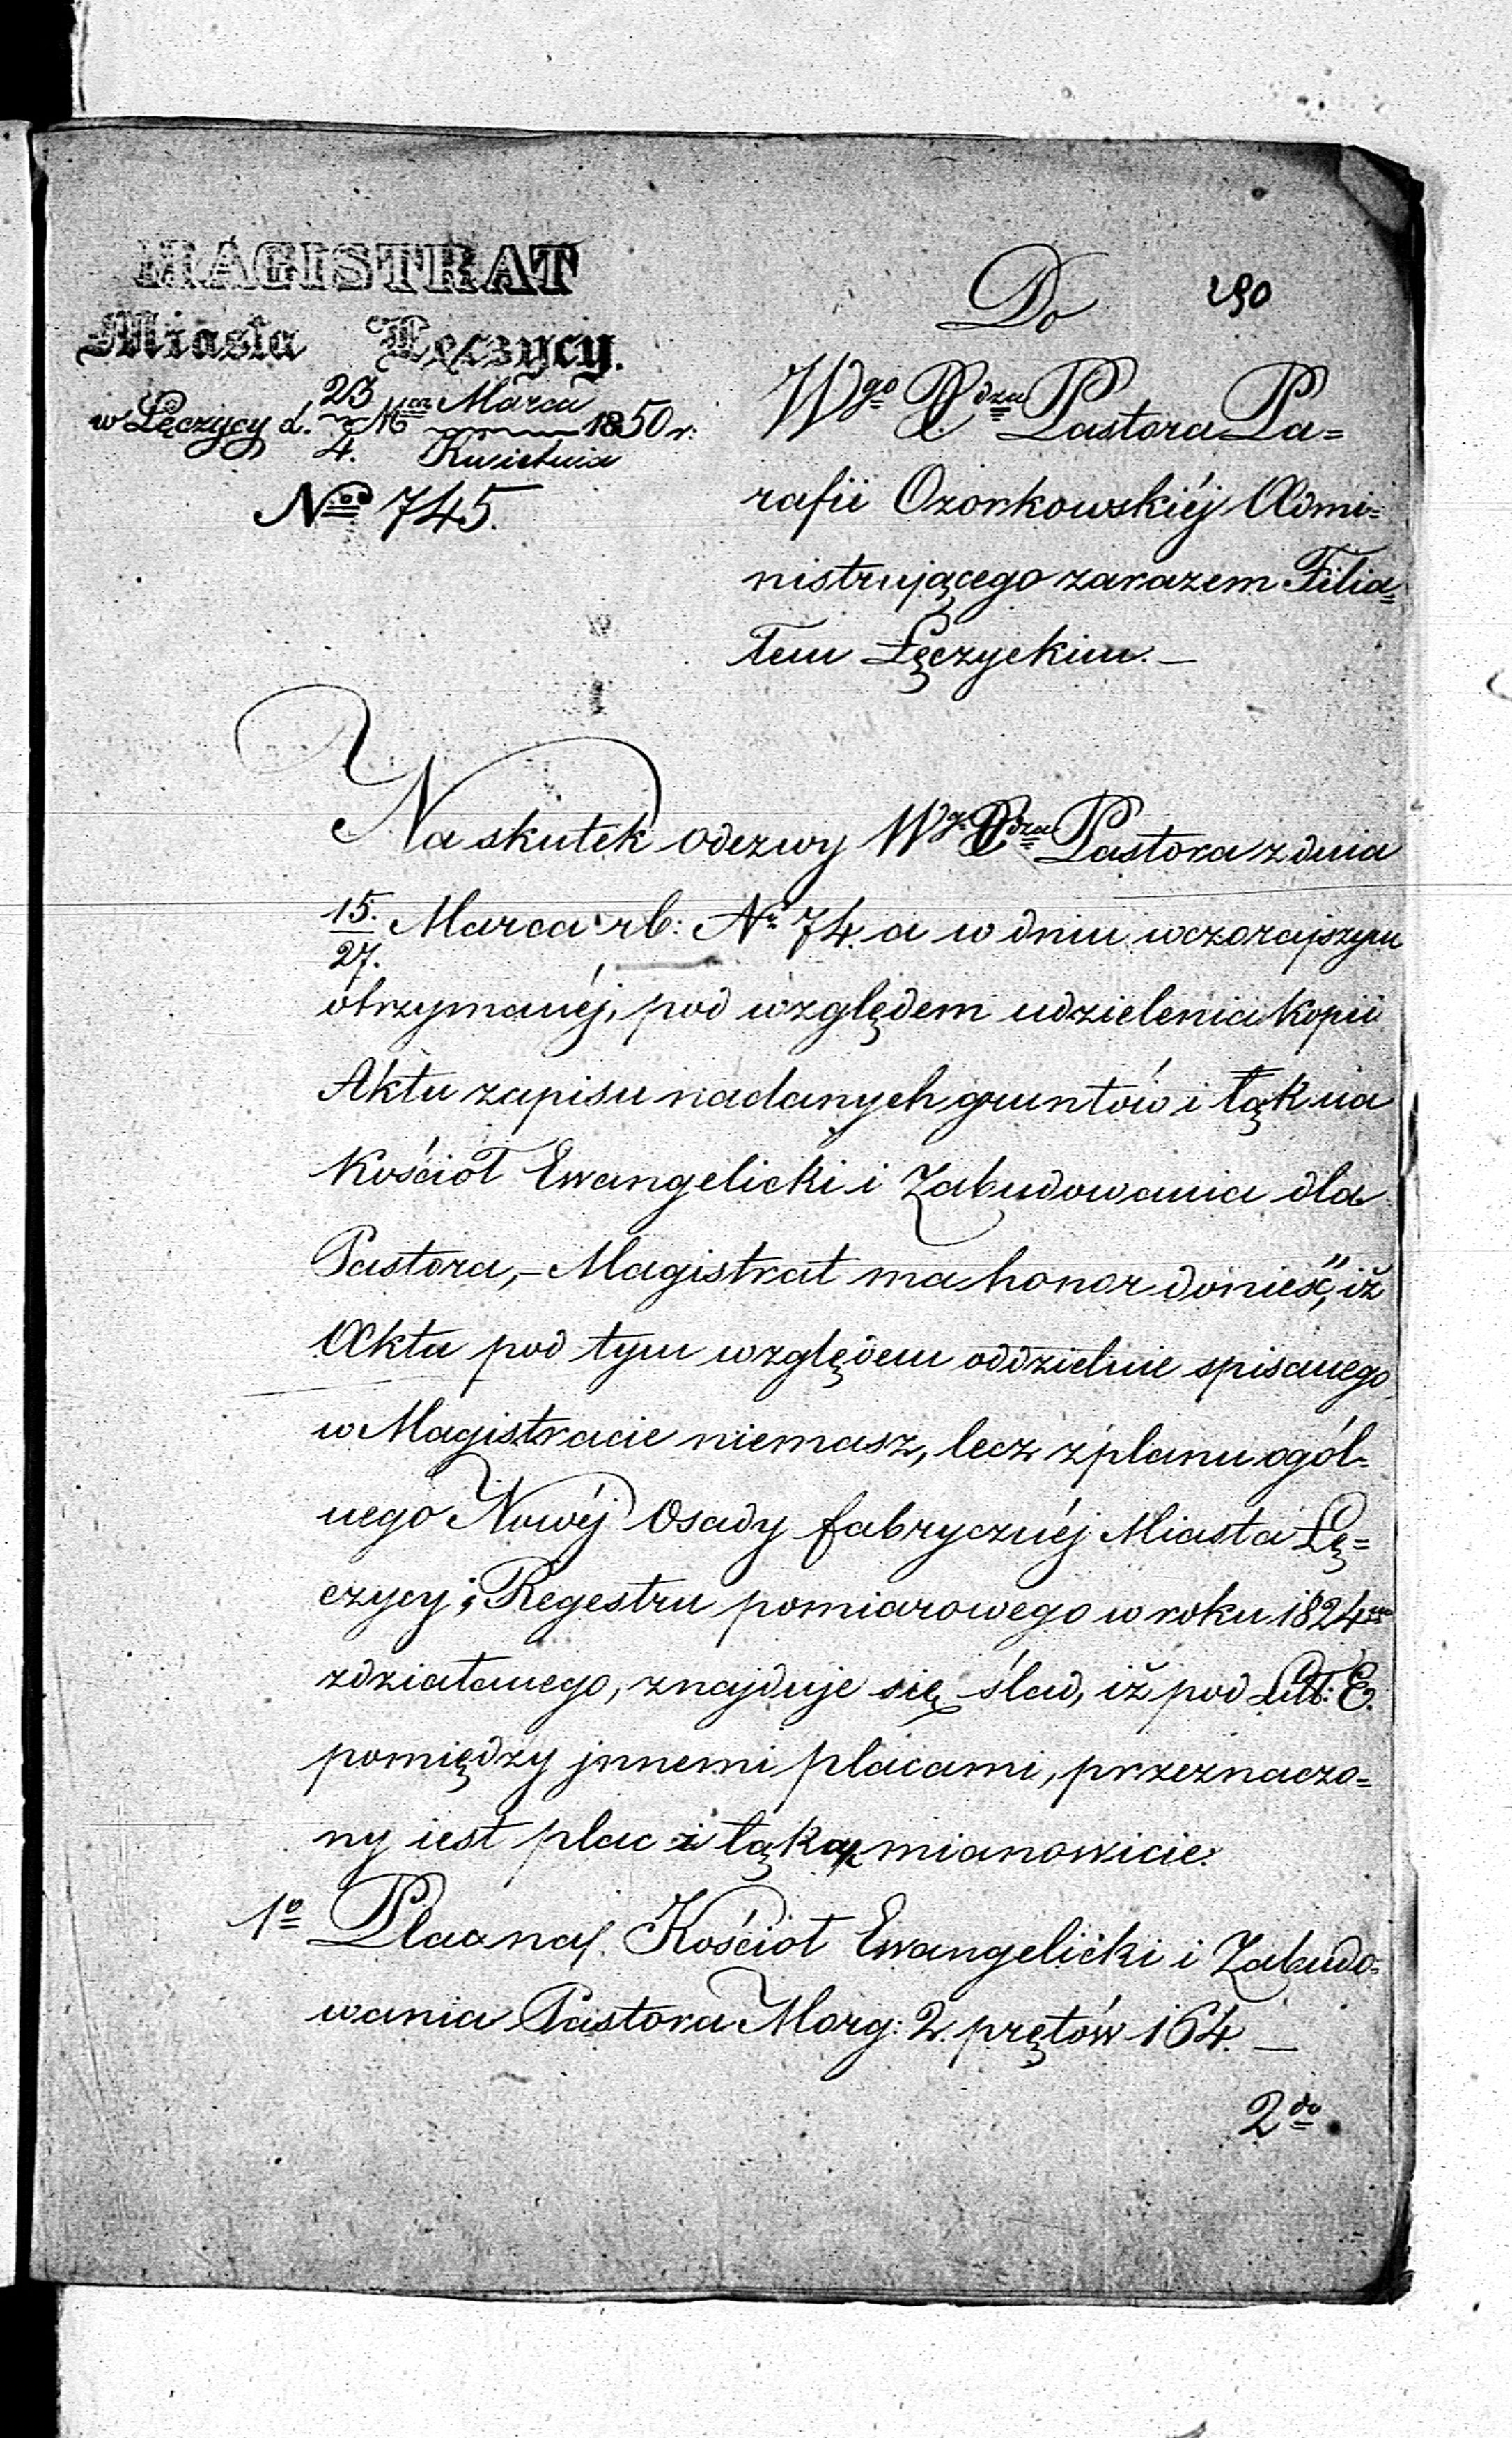 MAGISTRAT
Miasta Łęczycy.
w Łęczycy d. 23/4. Mca Marca/Kwietnia 1850 r:
No 745.
190
Do
Wgo Xdza Pastora Pa=
rafii Ozorkowskiéj Admi=
nistrującego zarazem Filia=
łem Łęczyckim. —
Na skutek odezwy Wgo Xdza Pastora z dnia
15./27. Marca rb: Nr 74. a w dniu wczorajszym
otrzymanéj, pod względem udzielenia kopii
Aktu zapisu nadanych gruntów i łąk na
Kościoł Ewangelicki i Zabudowania dla
Pastora, – Magistrat ma honor donieść, iż
Aktu pod tym względem oddzielnie spisanego
w Magistracie niemasz, lecz z planu ogól=
nego Nowéj Osady fabrycznéj Miasta Łę=
czycy i Regestru pomiarowego w roku 1824
zdziałanego, znajduje się ślad, iż pod Litt: E.
pomiędzy jnnemi placami, przeznaczo=
ny iest plac i łąka mianowicie:
1o Plac na Kościoł Ewangelicki i Zabudo=
wania Pastora Morg: 2. prętów 164. —
2do